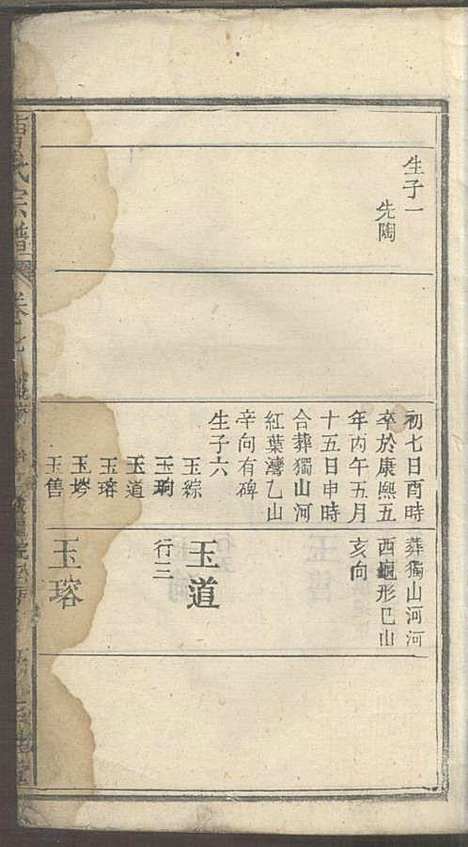 生子一
先陶
初七日酉時
卒於康熙五
年丙午五月
十五日申時
合葬獨山河
紅葉灣乙山
辛向有碑
生子六
玉綜
玉珣
玉道
玉瑢
玉塝
玉售
葬獨山河河
西覼形巳山
亥向
玉道
行三
玉瑢
曹氏宗譜
卷七